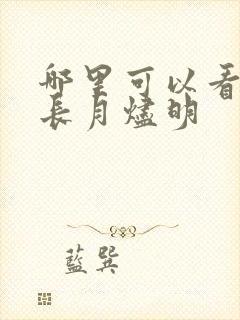 哪里可以看
長月燼明
藍巽